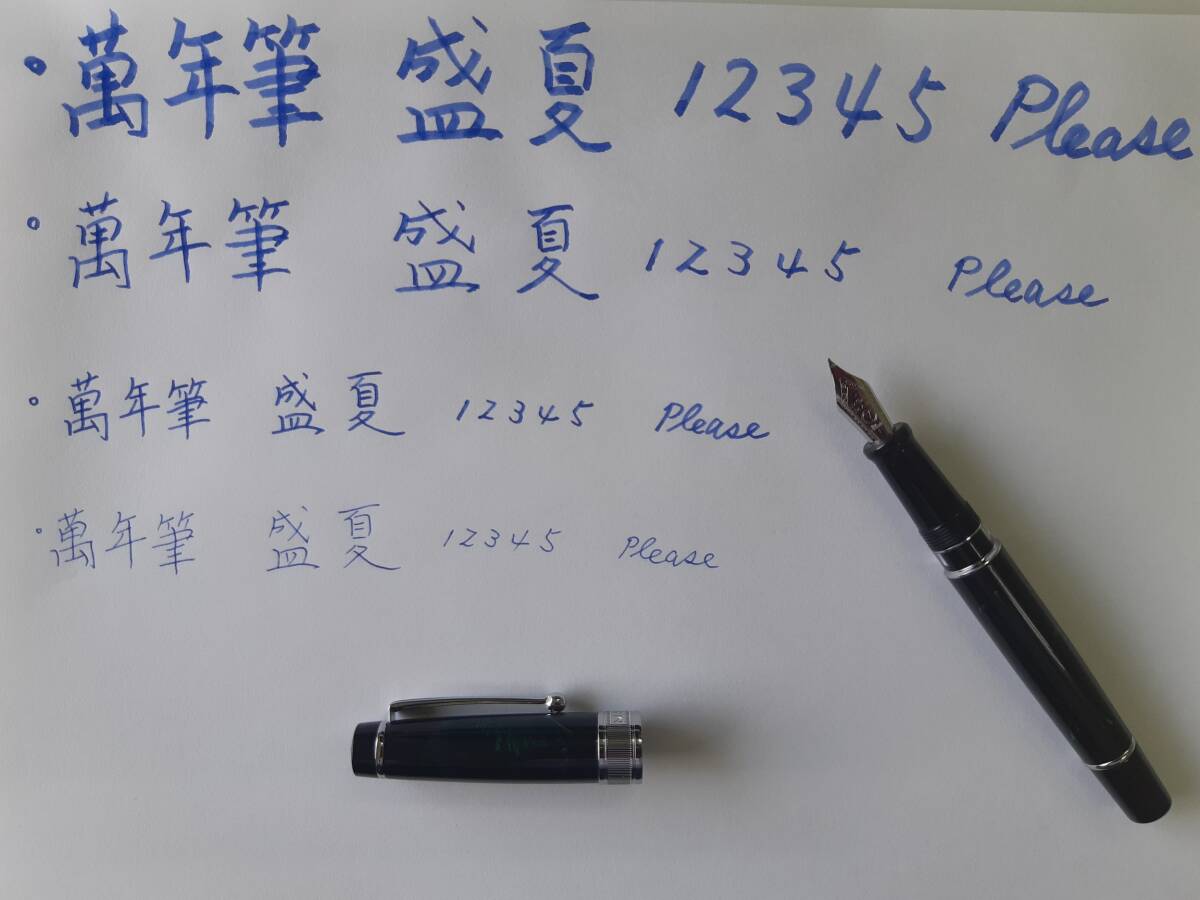 萬年筆 盛夏 12345 Please
萬年筆 盛夏 12345 Please
萬年筆 盛夏 12345 Please
萬年筆 盛夏 12345 Please